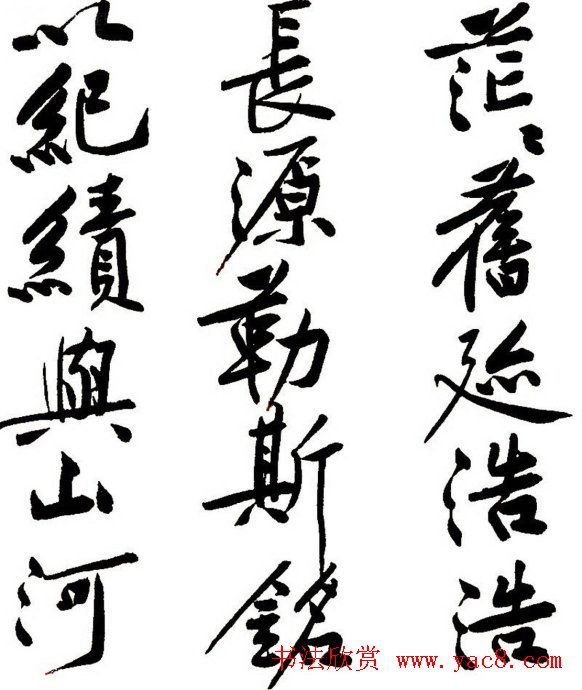 茫〻舊迹浩浩
長源勒斯銘
以紀績與山河
书法欣赏 www.yac8.com